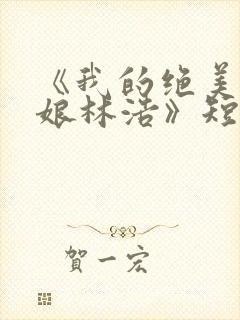 《我的绝美
娘林浩》短
賀一宏